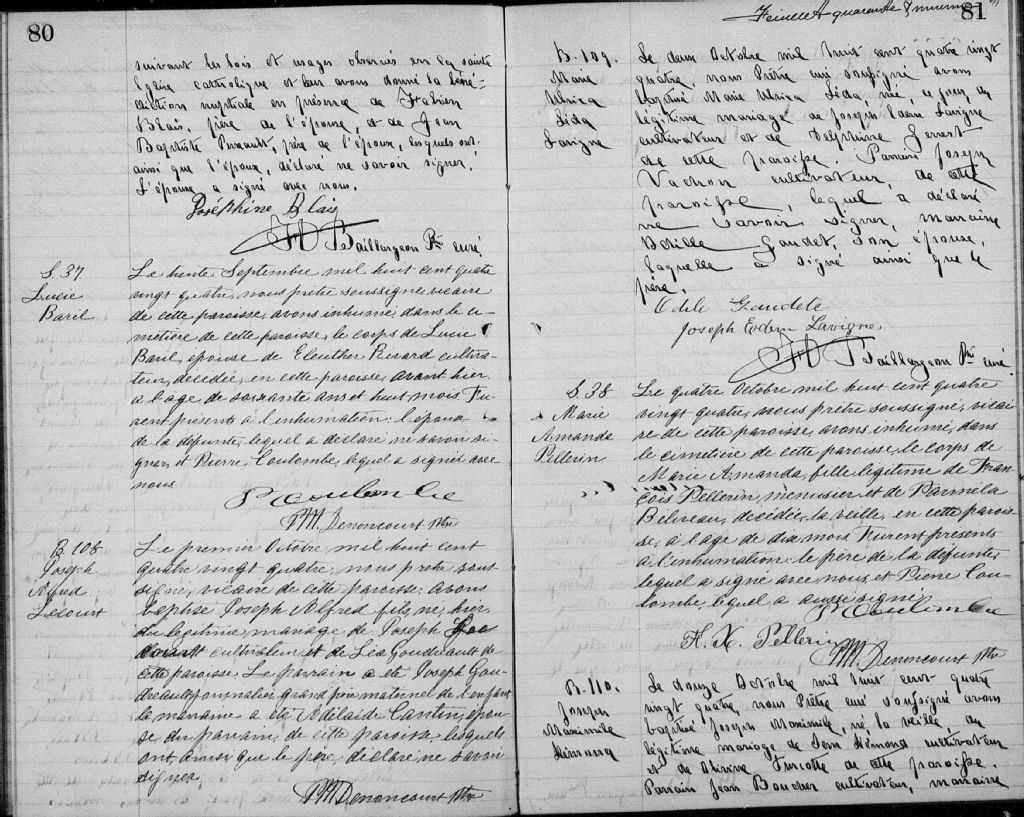 80
suivant les lois et usages observés en la sainte
Eglise catholique et leur avons donné la béné-
diction nuptiale en présence de Fabien
Blais, père de l'épouse, et de Jean
Baptiste Perault, père de l'époux, lesquels ont
ainsi que l'époux, déclaré ne savoir signer.
L'épouse a signé avec nous.
Joséphine Blais
Baillargeon Ptre curé
S. 37
Lucie
Baril
Le trente Septembre mil huit cent quatre
vingt quatre, nous prêtre soussigné, vicaire
de cette paroisse, avons inhumé, dans le ci-
metière de cette paroisse, le corps de Lucie
Baril, épouse de Eleuther Rivard cultiva-
teur, décidée, en cette paroisse, avant hier
à l'âge de soixante ans et huit mois. Fu-
rent présents à l'inhumation: l'époux
de la défunte, lequel a déclaré ne savoir si-
gner, et Pierre Coulombe, lequel a signé avec
nous
P Coulombe
Denoncourt Ptre
B. 108
Joseph
Alfred
Lecourt
Le premier Octobre mil huit cent
quatre vingt quatre, nous prêtre sous-
signé, vicaire de cette paroisse avons
baptisé Joseph Alfred fils, né, hier
du légitime mariage de Joseph
cultivateur et de Léa Goudreault de
cette paroisse. Le parrain a été Joseph Gou-
dreault, journalier, grand père maternel de l'enfant
la marraine a été Adélaide Cantin, épou-
se du parrain, de cette paroisse. lesquels
ont, ainsi que le père, déclaré ne savoir
signer.
Denoncourt Ptre
Feuillet quarante
81
B. 109.
Marie
Ulriza
Léda
Lavigne
Le deux Octobre mil huit cent quatre vingt
quatre, nous Prêtre curé soussigné avons
baptisé Marie Ulriza Léda, née, ce jour, du
légitime mariage de Joseph Edem Lavigne
cultivateur et de Delphine
de cette paroisse. Parrain Joseph
Vachon cultivateur, de cette
paroisse, lequel a déclaré
ne savoir signer, marraine
Odille Gaudet, son épouse,
laquelle a signé ainsi que le
père.
Odile Gaudete
Joseph Edem Lavigne
Baillargeon Ptre curé
S. 38
Marie
Amanda
Pellerin
Le quatre Octobre mil huit cent quatre
vingt quatre, nous prêtre soussigné, vicai-
re de cette paroisse, avons inhumé, dans
le cimetière de cette paroisse, le corps de
Marie Amanda, fille légitime de Fran-
cois Pellerin, menusier et de Parméla
Béliveau, décidée, la veille, en cette parois-
se, à l'âge de dix mois. Furent présents
à l'inhumation: le père de la défunte,
lequel a signé avec nous, et Pierre Cou-
lombe, lequel a aussi signé
P Coulombe
F. X. Pellerin
Denoncourt Ptre
B. 110.
Joseph
Maximile
Hémond
Le douze Octobre mil huit cent quatre
vingt quatre, nous Prêtre curé soussigné avons
baptisé Joseph Maximile, né la veille, du
légitime mariage de Hémond cultivateur
et de Turcotte de cette paroisse.
Parrain Jean Boucher cultivateur, marraine